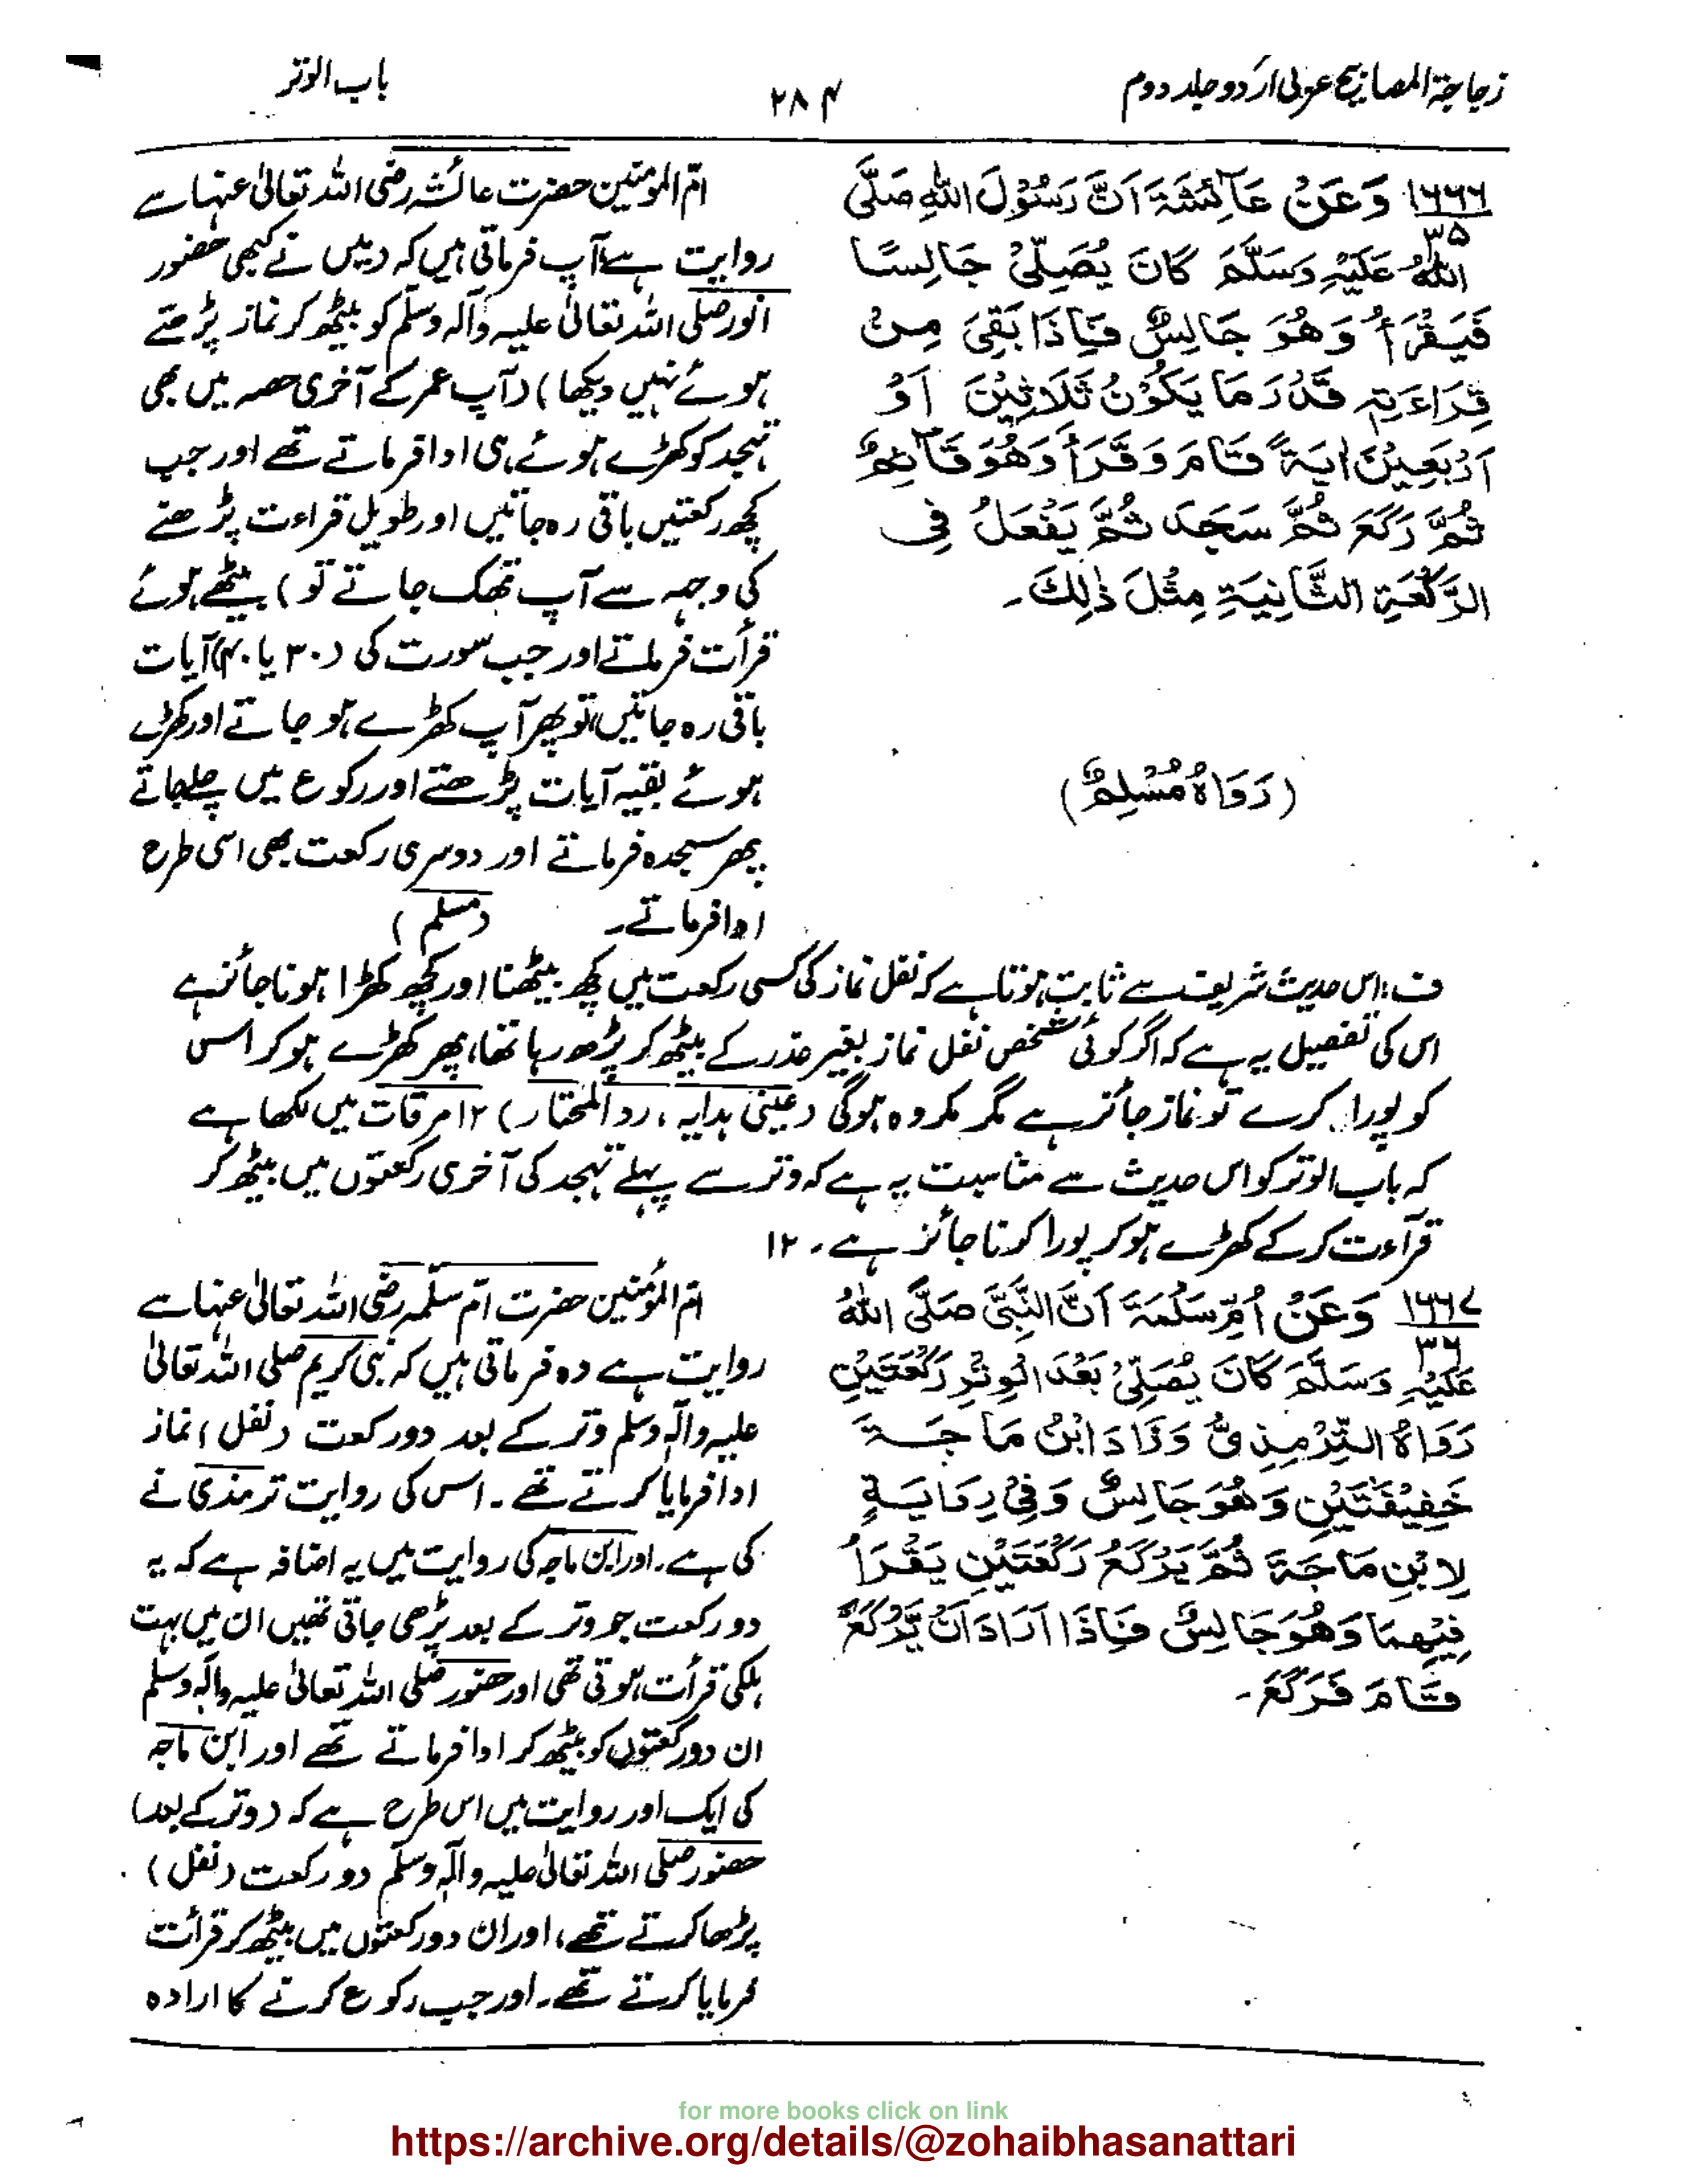 زجاجۃ المصابیح عربی اردو جلد دوم
۲۸۴
باب الوتر
۱۶۶۶ وَعَنْ عَآئِشَةَ اَنَّ رَسُوْلَ اللّٰهِ صَلَّی
۳۵
اللّٰهُ عَلَيْهِ وَسَلَّمَ كَانَ يُصَلِّيْ جَالِسًا
فَيَقْرَأُ وَهُوَ جَالِسٌ فَاِذَا بَقِيَ مِنْ
قِرَاءَتِهٖ قَدْرَ مَا يَكُوْنُ ثَلَاثِيْنَ اَوْ
اَرْبَعِيْنَ اٰيَةً قَامَ وَقَرَأَ وَهُوَ قَآئِمٌ
ثُمَّ رَكَعَ ثُمَّ سَجَدَ ثُمَّ يَفْعَلُ فِي
الرَّكْعَةِ الثَّانِيَةِ مِثْلَ ذٰلِكَ۔
(رَوَاهُ مُسْلِمٌ)
امّ المومنین حضرت عائشہ رضی اللہ تعالیٰ عنہا سے
روایت ہے آپ فرماتی ہیں کہ (میں نے کبھی حضور
انور صلی اللہ تعالیٰ علیہ وآلہ وسلم کو بیٹھ کر نماز پڑھتے
ہوئے نہیں دیکھا) (آپ عمر کے آخری حصہ میں بھی
تہجد کو کھڑے ہوئے ہی ادا فرماتے تھے اور جب
کچھ رکعتیں باقی رہ جاتیں اور طویل قراءت پڑھنے
کی وجہ سے آپ تھک جاتے تو) بیٹھے ہوئے
قرأت فرماتے اور جب سورت کی (۳۰ یا ۴۰) آیات
باقی رہ جاتیں تو پھر آپ کھڑے ہو جاتے اور کھڑے
ہوئے بقیہ آیات پڑھتے اور رکوع میں چلے جاتے
پھر سجدہ فرماتے اور دوسری رکعت بھی اسی طرح
ادا فرماتے۔ (مسلم)
ف: اس حدیث شریف سے ثابت ہوتا ہے کہ نفل نماز کی کسی رکعت میں کچھ بیٹھنا اور کچھ کھڑا ہونا جائز ہے
اس کی تفصیل یہ ہے کہ اگر کوئی شخص نفل نماز بغیر عذر کے بیٹھ کر پڑھ رہا تھا، پھر کھڑے ہو کر اس
کو پورا کرے تو نماز جائز ہے مگر مکروہ ہوگی (عینی ہدایہ، رد المحتار) ۱۲ مرقات میں لکھا ہے
کہ باب الوتر کو اس حدیث سے مناسبت یہ ہے کہ وتر سے پہلے تہجد کی آخری رکعتوں میں بیٹھ کر
قرآءت کر کے کھڑے ہو کر پورا کرنا جائز ہے۔ ۱۲
۱۶۶۷ وَعَنْ اُمِّ سَلْمَةَ اَنَّ النَّبِيَّ صَلَّی اللّٰهُ
۳۶
عَلَيْهِ وَسَلَّمَ كَانَ يُصَلِّيْ بَعْدَ الْوِتْرِ رَكْعَتَيْنِ
رَوَاهُ التِّرْمِذِيُّ وَزَادَ ابْنُ مَاجَةَ
خَفِيْفَتَيْنِ وَهُوَ جَالِسٌ وَفِيْ رِوَايَةٍ
لِابْنِ مَاجَةَ ثُمَّ يَرْكَعُ رَكْعَتَيْنِ يَقْرَأُ
فِيْهِمَا وَهُوَ جَالِسٌ فَاِذَا اَرَادَ اَنْ يَّرْكَعَ
قَامَ فَرَكَعَ۔
امّ المؤمنین حضرت امّ سلمہ رضی اللہ تعالیٰ عنہا سے
روایت ہے وہ فرماتی ہیں کہ نبی کریم صلی اللہ تعالیٰ
علیہ والٰہ وسلم وتر کے بعد دو رکعت (نفل) نماز
ادا فرمایا کرتے تھے۔ اس کی روایت ترمذی نے
کی ہے۔ اور ابن ماجہ کی روایت میں یہ اضافہ ہے کہ یہ
دو رکعت جو وتر کے بعد پڑھی جاتی تھیں ان میں بہت
ہلکی قرأت ہوتی تھی اور حضور صلی اللہ تعالیٰ علیہ والٰہ وسلم
ان دو رکعتوں کو بیٹھ کر ادا فرماتے تھے اور ابن ماجہ
کی ایک اور روایت میں اس طرح ہے کہ (وتر کے بعد)
حضور صلی اللہ تعالیٰ علیہ والٰہ وسلم دو رکعت (نفل)
پڑھا کرتے تھے، اور ان دو رکعتوں میں بیٹھ کر قرأت
فرمایا کرتے تھے۔ اور جب رکوع کرنے کا ارادہ
for more books click on link
https://archive.org/details/@zohaibhasanattari